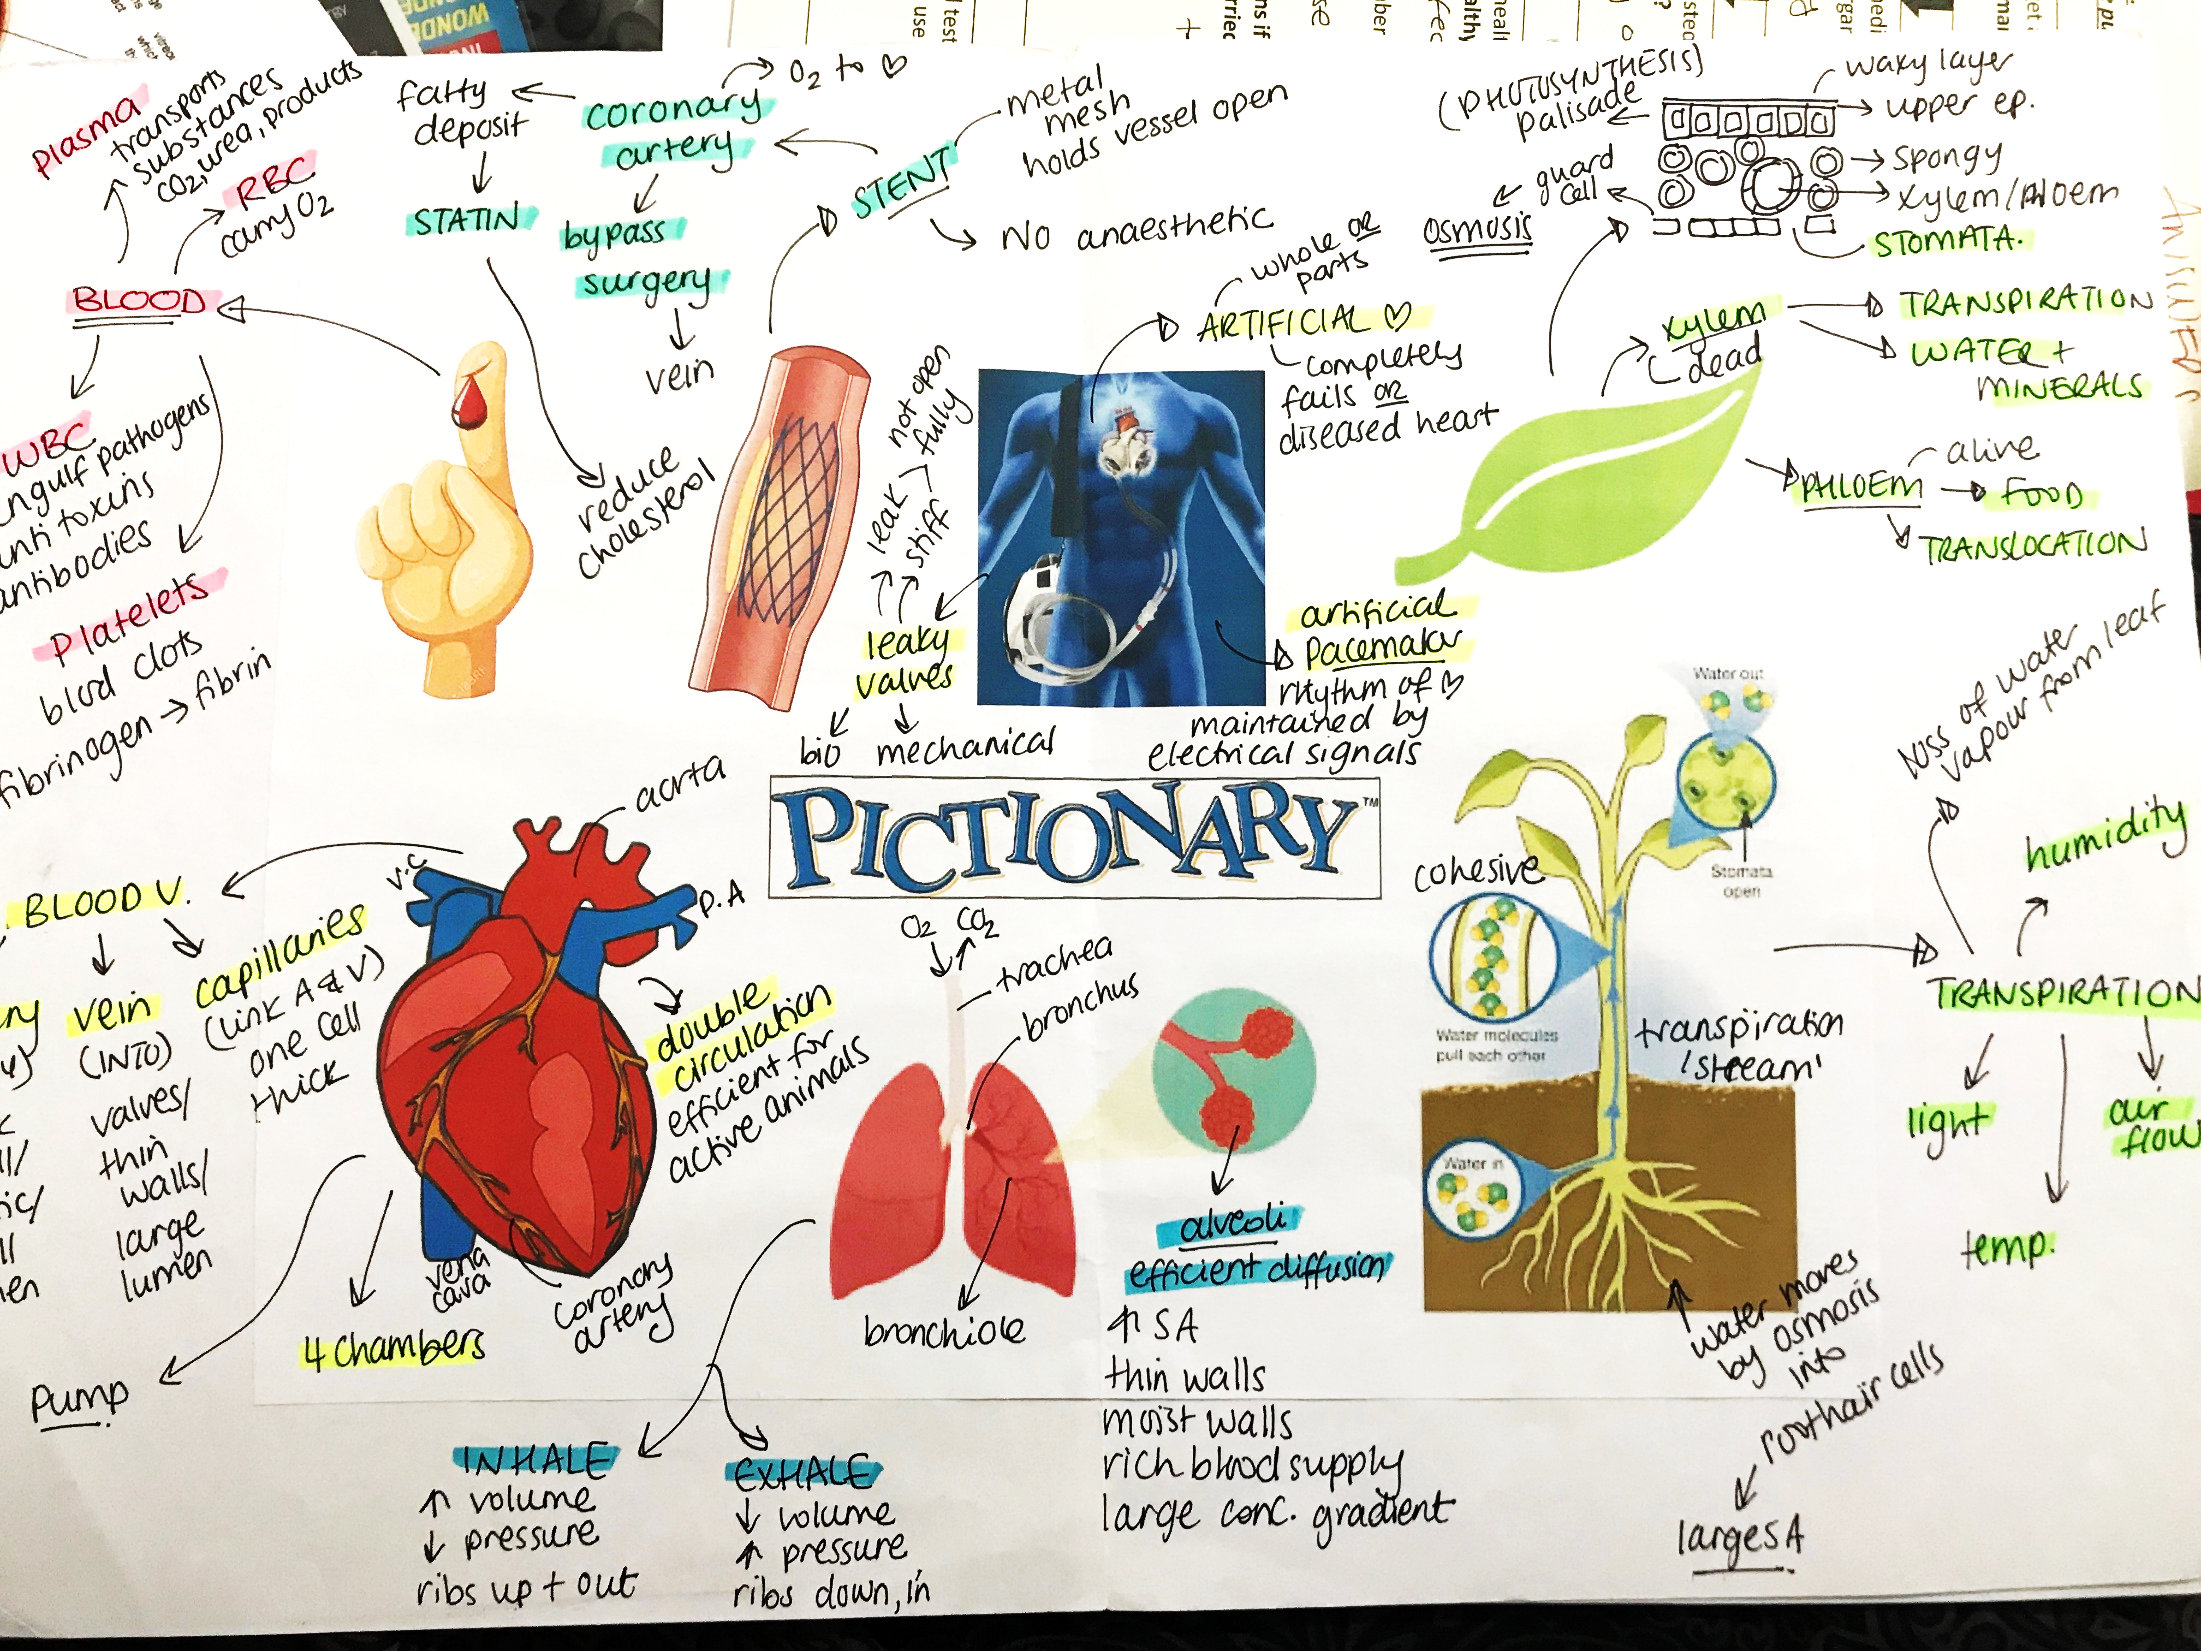 plasma
transports
substances
CO2, urea, products
RBC
carry O2
BLOOD
WBC
engulf pathogens
anti toxins
antibodies
Platelets
blood clots
fibrinogen → fibrin
fatty
deposit
STATIN
reduce
cholesterol
coronary
artery
O2 to ♡
bypass
surgery
vein
STENT
metal
mesh
holds vessel open
No anaesthetic
ARTIFICIAL ♡
whole OR
parts
completely
fails OR
diseased heart
leak
stiff
not open
fully
leaky
valves
bio
mechanical
artificial
pacemaker
rhythm of ♡
maintained by
electrical signals
(PHOTOSYNTHESIS)
palisade
waxy layer
upper ep.
spongy
xylem/phloem
STOMATA.
guard
cell
OSMOSIS
xylem
dead
TRANSPIRATION
WATER +
MINERALS
PHLOEM
alive
FOOD
TRANSLOCATION
PICTIONARY™
aorta
V.C
P.A
BLOOD V.
vein
(INTO)
valves/
thin
walls/
large
lumen
capillaries
(link A & V)
one cell
thick
double
circulation
efficient for
active animals
vena
cava
coronary
artery
4 chambers
Pump
O2 CO2
trachea
bronchus
bronchiole
alveoli
efficient diffusion
↑ SA
thin walls
moist walls
rich blood supply
large conc. gradient
INHALE
↑ volume
↓ pressure
ribs up + out
EXHALE
↓ volume
↑ pressure
ribs down, in
Water out
Stomata
open
cohesive
Water molecules
pull each other
Water in
transpiration
'stream'
water moves
by osmosis
into
root hair cells
large SA
TRANSPIRATION
loss of water
vapour from leaf
humidity
light
temp.
air
flow